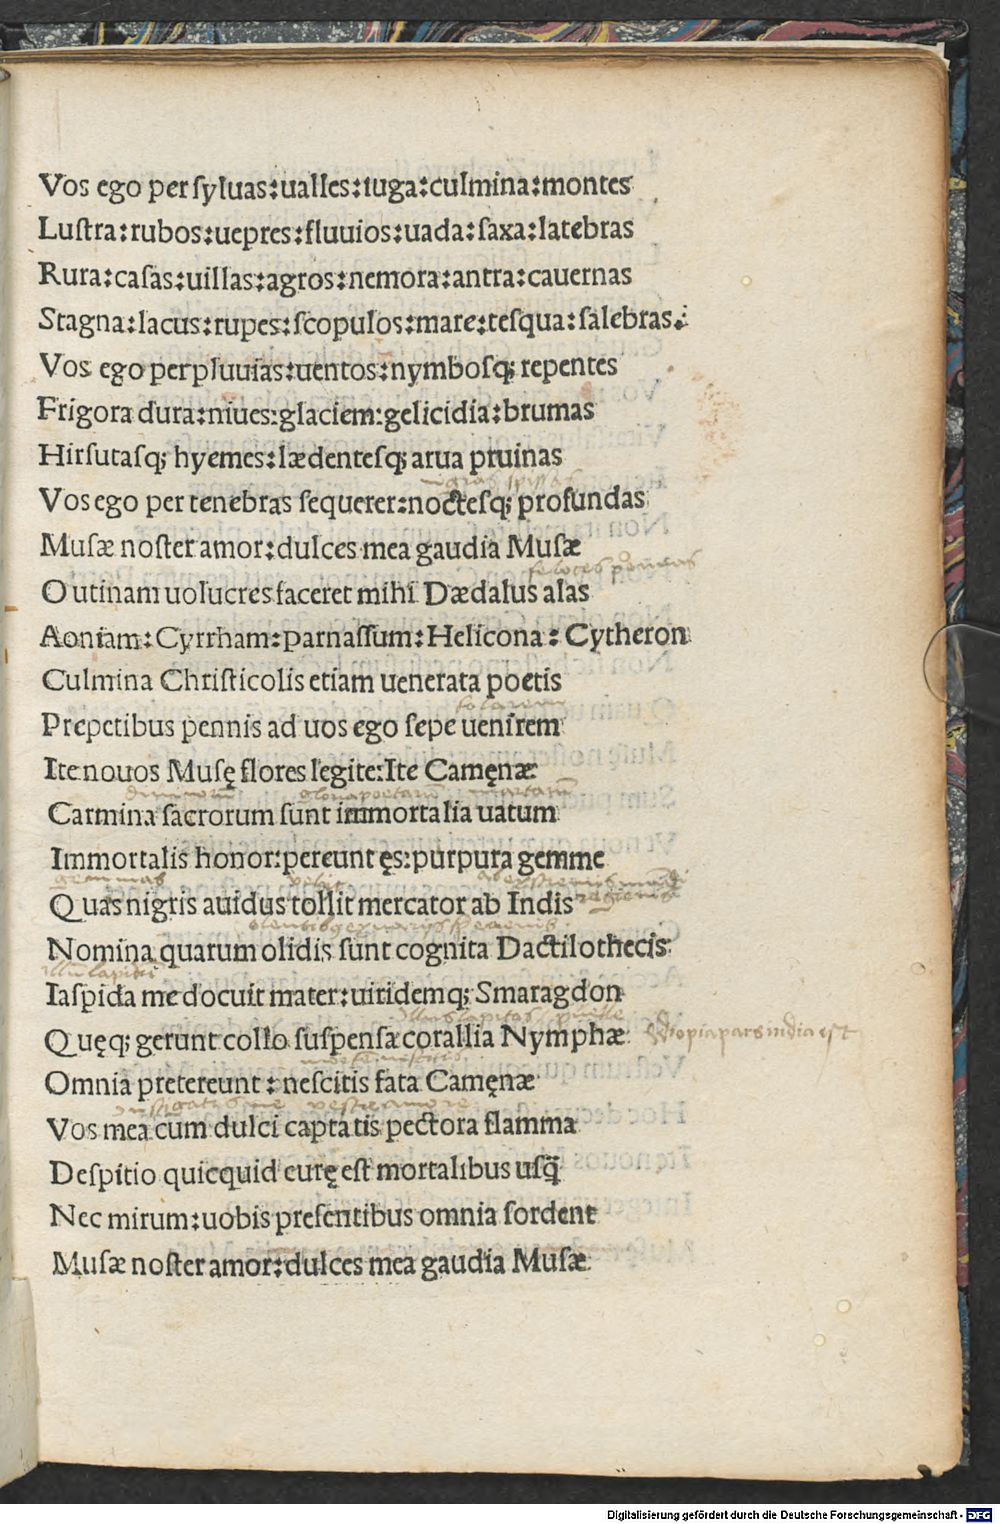 Vos ego per syluas:ualles:iuga:culmina:montes
Lustra:rubos:uepres:fluuios:uada:saxa:latebras
Rura:casas:uillas:agros:nemora:antra:cauernas
Stagna:lacus:rupes:scopulos:mare:tesqua:salebras.
Vos ego perpluuias:uentos:nymbosq; repentes
Frigora dura:niues:glaciem:gelicidia:brumas
Hirsutasq; hyemes:lædentesq; arua pruinas
Vos ego per tenebras sequerer:noctesq; profundas
Musæ noster amor:dulces mea gaudia Musæ
O utinam uolucres faceret mihi Dædalus alas
Aoniam:Cyrrham:parnassum:Helicona:Cytheron
Culmina Christicolis etiam uenerata poetis
Prepetibus pennis ad uos ego sepe uenirem
Ite nouos Musę flores legite:Ite Camęnæ
Carmina sacrorum sunt immortalia uatum
Immortalis honor:pereunt ęs:purpura gemme
gemmas
Quas nigris auidus tollit mercator ab Indis
Nomina quarum olidis sunt cognita Dactilothecis
Iaspida me docuit mater:uiridemq; Smaragdon
Quęq; gerunt collo suspensa corallia Nymphæ
Omnia pretereunt:nescitis fata Camęnæ
Vos mea cum dulci captatis pectora flamma
Despitio quicquid curę est mortalibus usq̃
Nec mirum:uobis presentibus omnia sordent
Musæ noster amor:dulces mea gaudia Musæ
Digitalisierung gefördert durch die Deutsche Forschungsgemeinschaft - DFG